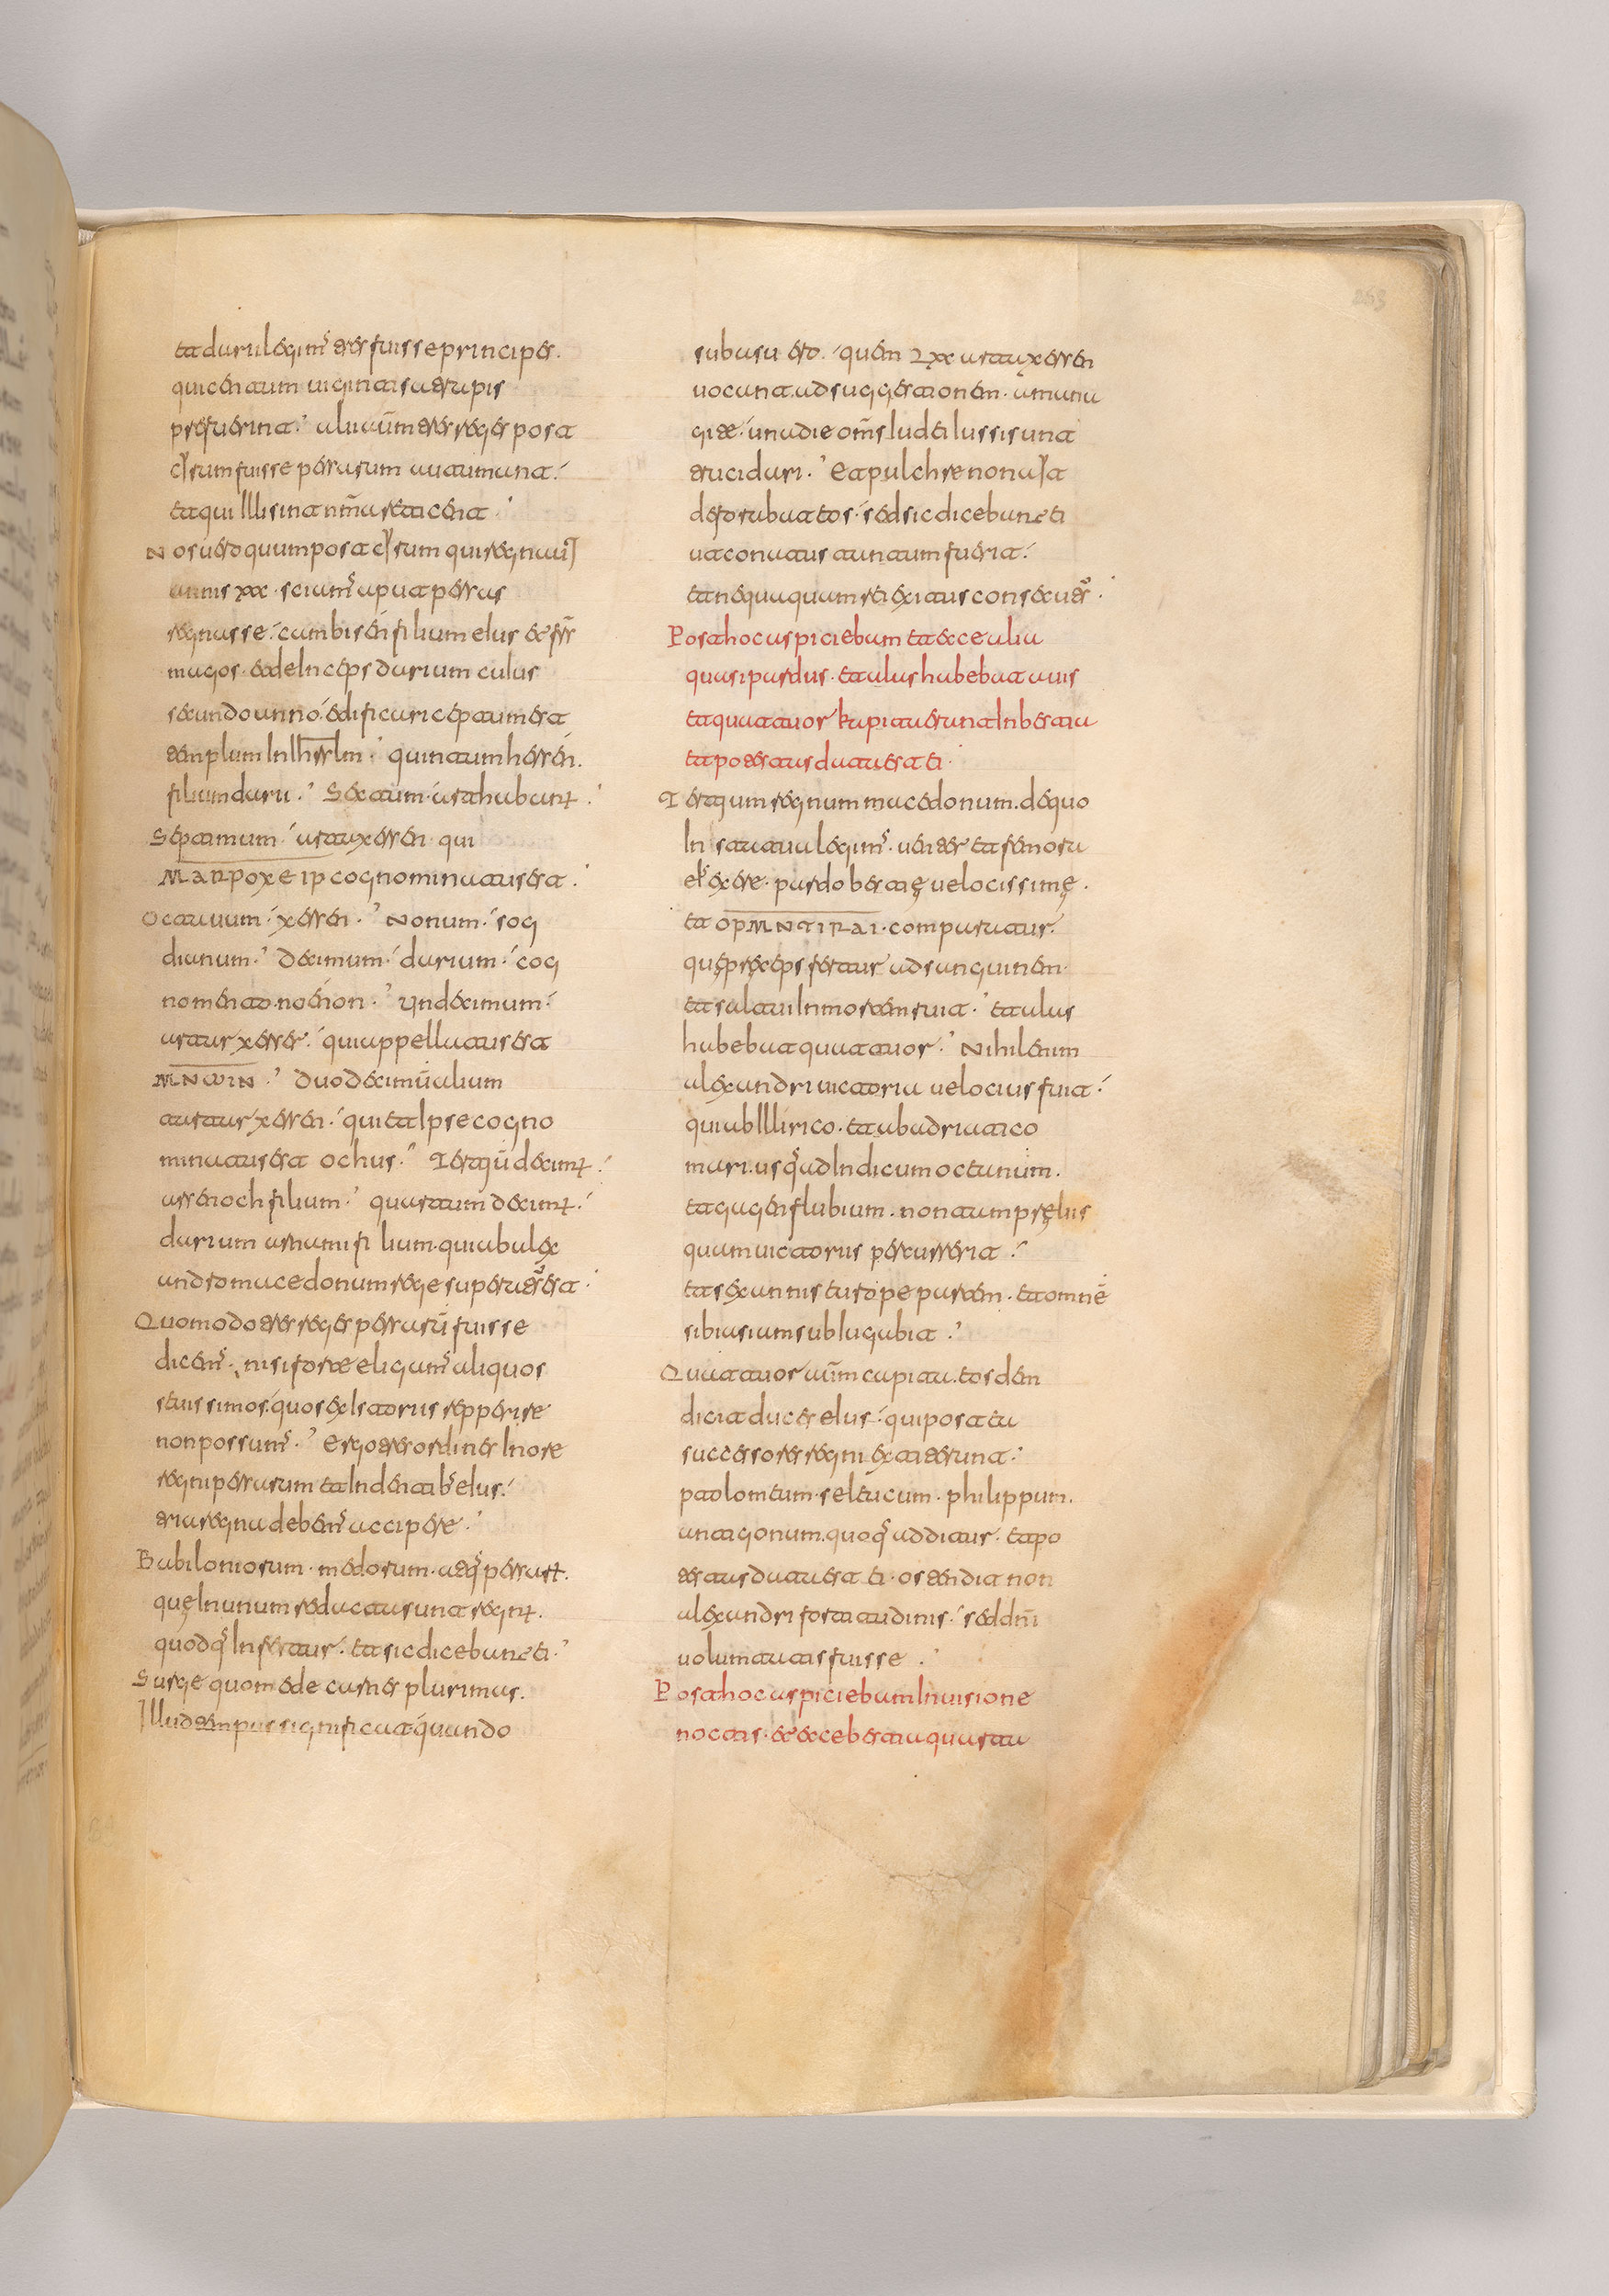 et darii legims tres fuisse principes.
qui centum viginti satrapis
prefuerint. alii aūm tres reges post
cyrum fuisse persarum autumant.
et qui illi sint nm̄a reticent.
Nos vero quum post cyrum qui regnavit
annis xxx. sciams aput persas
regnasse. cambisen filium eius et frs̄
magos. et deinceps darium cuius
secundo anno. edificari ceptum est
templum in ihersl̄m. quintum hersen.
filium darii. Sextum. artabant.
Septimum. artauxersen. qui
MARPOXEIP cognominatus est.
Octavum. xersen. Nonum. sog
dianum. Decimum. darium. cog
nomento. noton. Undecimum.
artaurxerser. qui appellatus est
MNωIN. duodecimū alium
artaurxersen. qui et ipse cogno
minatus est ochus. Tertiū decimt.
arsen och filium. quartum decimt.
darium arsami filium. qui ab alex
andro macedonum rege superats est.
Quomodo tres reges persarū fuisse
dicems. nisi forte eligams aliquos
sevissimos. quos ex istoriis repperire
non possums. Ergo tres ordines in ore
regni persarum et in dentibs eius.
tria regna debems accipere.
Babiloniorum. medorum. atqs persart.
quę in unum redacta sunt regnt.
quodqs infertur. et sic dicebant ei.
Surge quomede carnes plurimas.
Illud tempus significat. quando
sub asuero. quem lxx artauxersen
vocant. ad suggestionem. amanu
gie. una die om̄s iudei iussi sunt
trucidari. Et pulchre non ait
devorabat eos. sed sic dicebant ei
ut conatus tantum fuerit.
et nequaquam rei exitus consecuts.
Post hoc aspiciebam et ecce alia
quasi pardus. et alas habebat avis
et quattuor kapita erunt in bestia
et potestas data est ei.
Tertium regnum macedonum. de quo
in statua legims. venter et femora
eius ex ere. pardo bestię velocissimę.
et OPMNTIRAI. comparatur.
quę preceps fertur ad sanguinem.
et saltu in mortem ruit. et alas
habebat quattuor. Nihil enim
alexandri victoria velocius fuit.
qui ab illirico. et ab adriatico
mari. usqs ad indicum octanum.
et gagen flubium. non tam pręliis
quam victoriis percurrerit.
et sex annis europe partem. et omnē
sibi asiam subiugabit.
Quattuor aūm capita. eosdem
dicit duces eius. qui post eu
successores regni extiterunt.
ptolomeum. seleucum. philippum.
antigonum. quoqs additur. et po
testas data est ei. ostendit non
alexandri fortitudinis. sed dnī
volumtatis fuisse.
Post hoc aspiciebam in visione
noctis. et ecce bestia quarta